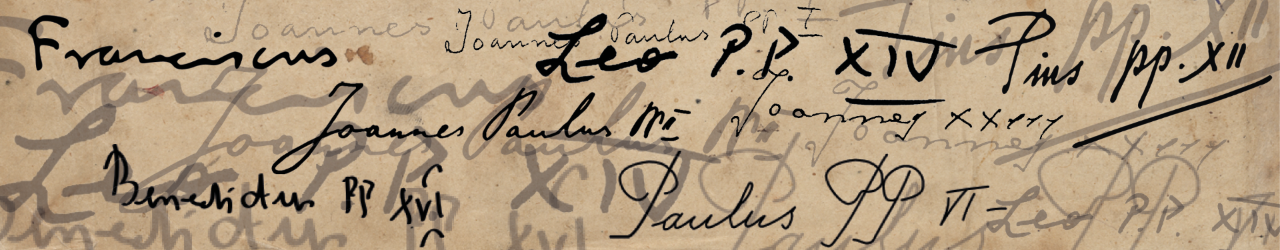 Joannes Paulus PP. I
Franciscus Leo P.P. XIV Pius pp. XII
Joannes Paulus PP. II Joannes XXIII
Benedictus PP XVI Paulus PP VI
Leo P.P. XIV